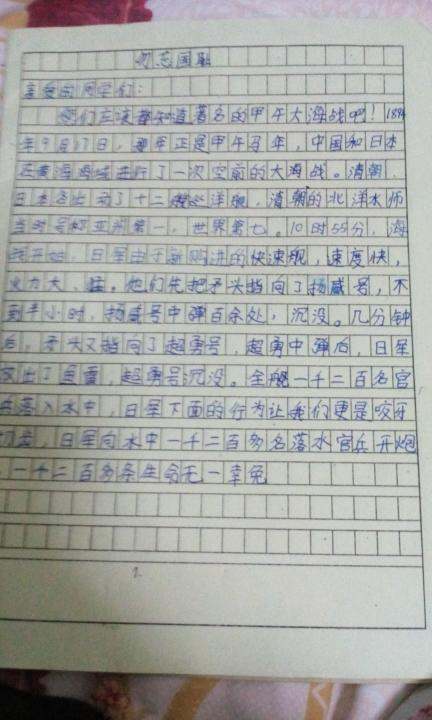 勿忘国耻
亲爱的同学们:
你们应该都知道著名的甲午大海战吧!1894
年9月17日,那年正是甲午马年,中国和日本
在黄海海域进行了一次空前的大海战。清朝、
日本各出动了十二艘巡洋舰,清朝的北洋水师
当时号称亚洲第一,世界第七。10时55分,海
战开始,日军由于新购进的快速舰,速度快,
火力大、猛。他们先把矛头指向了扬威号,不
到半小时,扬威号中弹百余处,沉没。几分钟
后,矛头又指向了超勇号,超勇中弹后,日军
放出了鱼雷,超勇号沉没。全舰一千二百名官
兵落入水中,日军下面的行为让我们更是咬牙
切齿,日军向水中一千二百多名落水官兵开炮
一千二百多条生命无一幸免